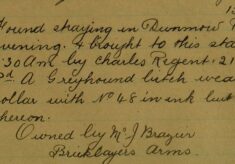 Found straying in Dunmow
evening. & brought to this sta
30am by Charles Regent. 21
A Greyhound bitch wea
ollar with No 48 in ink but
hereon.
Owned by Mr J Brazier
Bricklayers Arms.